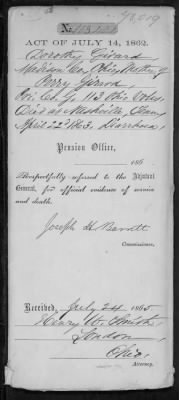 73,019
No.
ACT OF JULY 14, 1862.
Dorothy Girard
Madison Co. Ohio, Mother of
Perry Girard,
Pri. Co. 113 Ohio Vols.
Died at Nashville, Tenn,
April 22 1863, Diarrhoea,
Pension Office,
186
Respectfully referred to the Adjutant
General, for official evidence of service
and death.
Joseph H Barrett
Commissioner.
Received, July 24 1865
Henry W. Smith,
London,
Ohio,
Attorney.